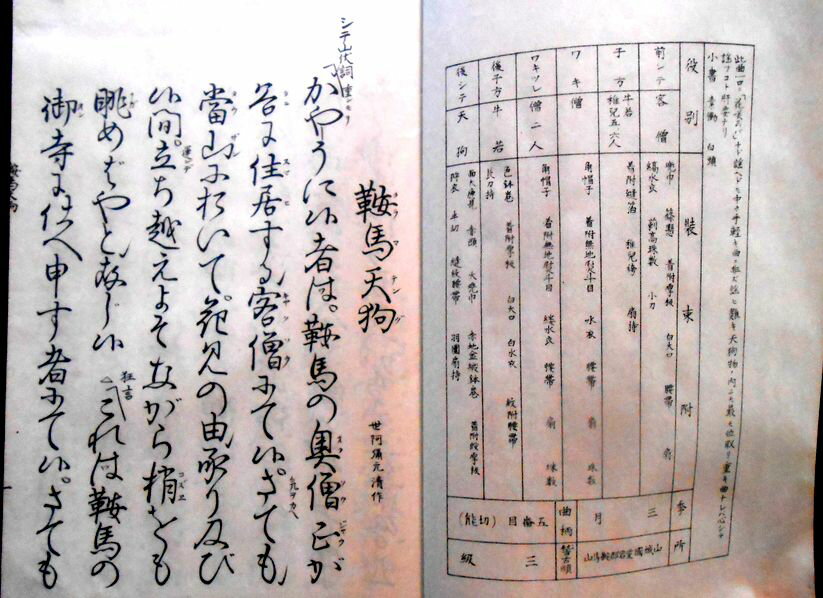 小書 素働 白頭
役別 装束附 季 所
前シテ 客僧
兜巾 篠懸 着附厚板 白大口 腰帯 扇
縞水衣 刺高珠数 小刀
子方 牛若 稚児五六人
着附縫箔 稚児袴 扇持
ワキ 僧
角帽子 着附無地熨斗目 水衣 腰帯 扇 珠数
ワキツレ 僧二人
角帽子 着附無地熨斗目 縷水衣 腰帯 扇 珠数
後子方 牛若
色鉢巻 着附厚板 白大口 白水衣 紋附腰帯
長刀持
後シテ 天狗
面大癋見 赤頭 大兜巾 赤地金緞鉢巻 着附段厚板
狩衣 半切 縫紋腰帯 羽團扇持
三月
山城國愛宕郡鞍馬山
曲柄 稽古順
五番目(切能)
三級
鞍馬天狗
クラマテング
世阿彌元清作
シテ山伏詞
かやうに候者は。鞍馬の奥僧正が
谷に住居する客僧にて候。さても
當山に於いて。花見の由承り及び
候間。立ち越えよそながら梢をも
眺めばやと存じ候
狂言
これは鞍馬の
御寺に仕へ申す者にて候。さても
鞍馬天狗